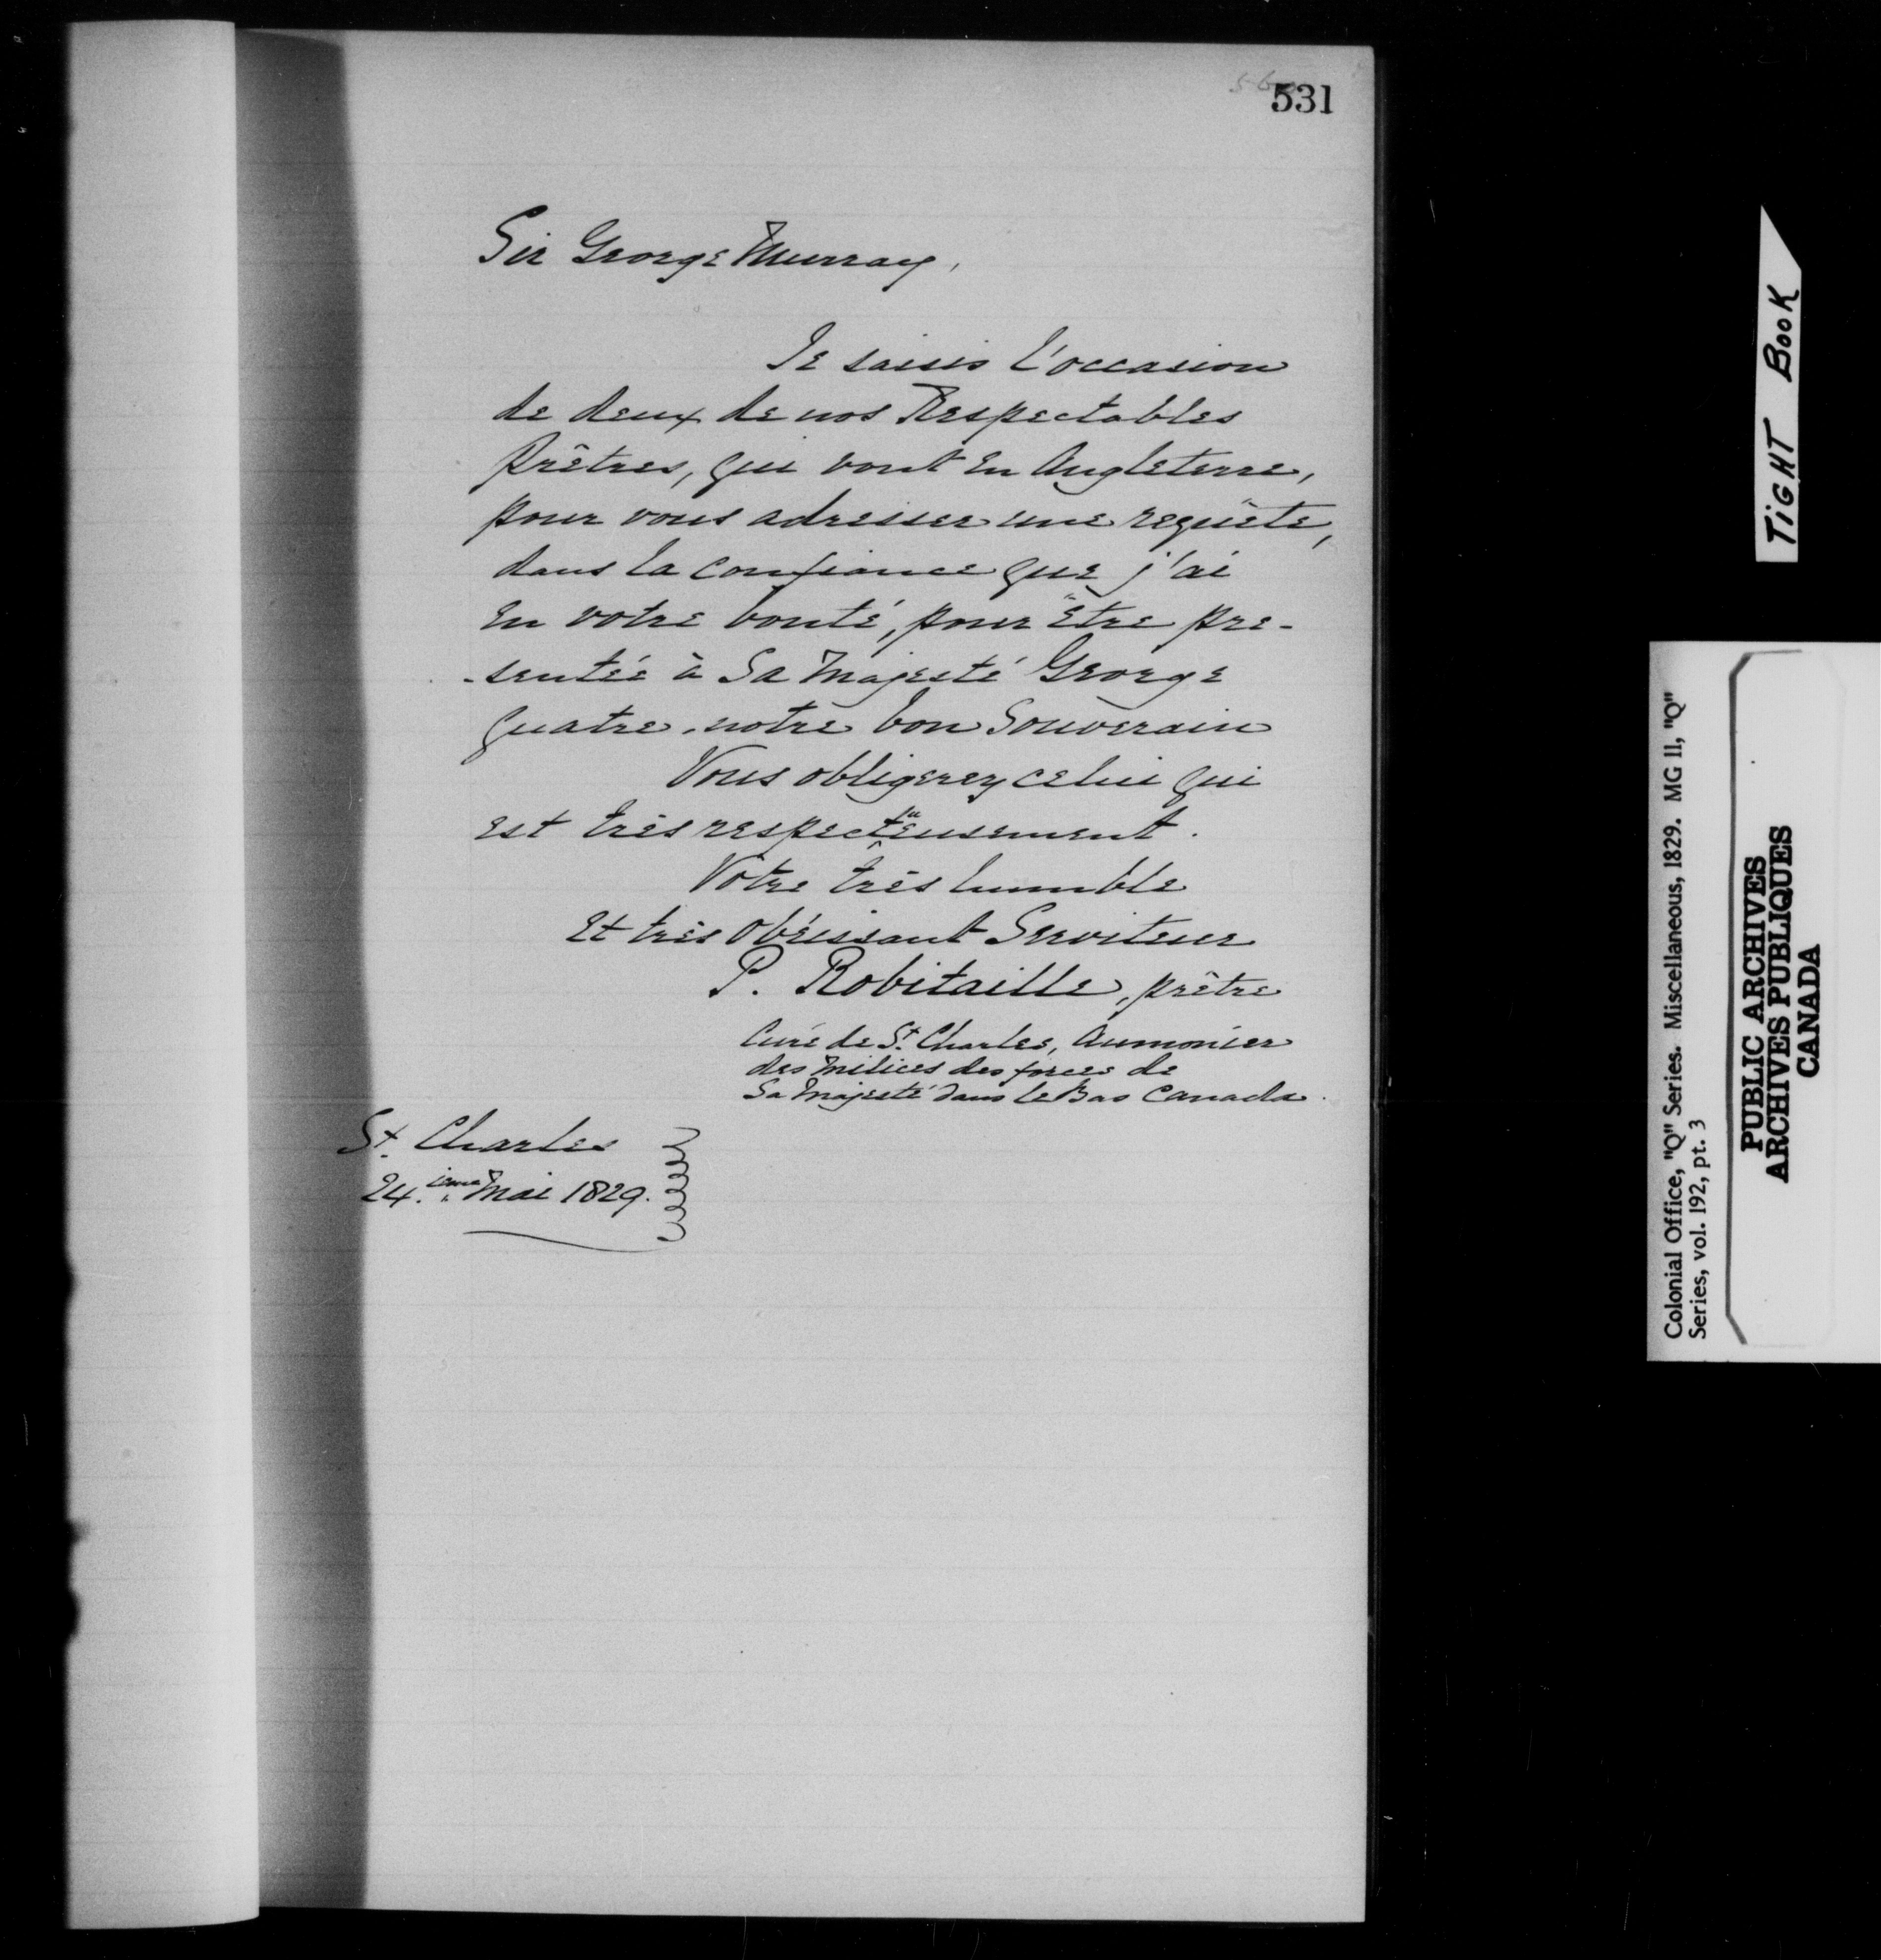 531
Sir George Murray,
Je saisis l'occasion
de deux de nos Respectables
Prêtres, qui vont en Angleterre,
pour vous adresser une requête,
dans la confiance que j'ai
en votre bonté, pour être pre-
-sentée à Sa Majesté George
quatre, notre bon Souverain
Vous obligerez celui qui
est très respectueusement.
Votre très humble
et très obéissant Serviteur
P. Robitaille, prêtre
Curé de St. Charles, Aumonier
des Milices des forces de
Sa Majesté dans le Bas Canada.
St. Charles
24.ieme Mai 1829.
TIGHT BOOK
Colonial Office, "Q" Series. Miscellaneous, 1829. MG 11, "Q"
Series, vol. 192, pt. 3
PUBLIC ARCHIVES
ARCHIVES PUBLIQUES
CANADA